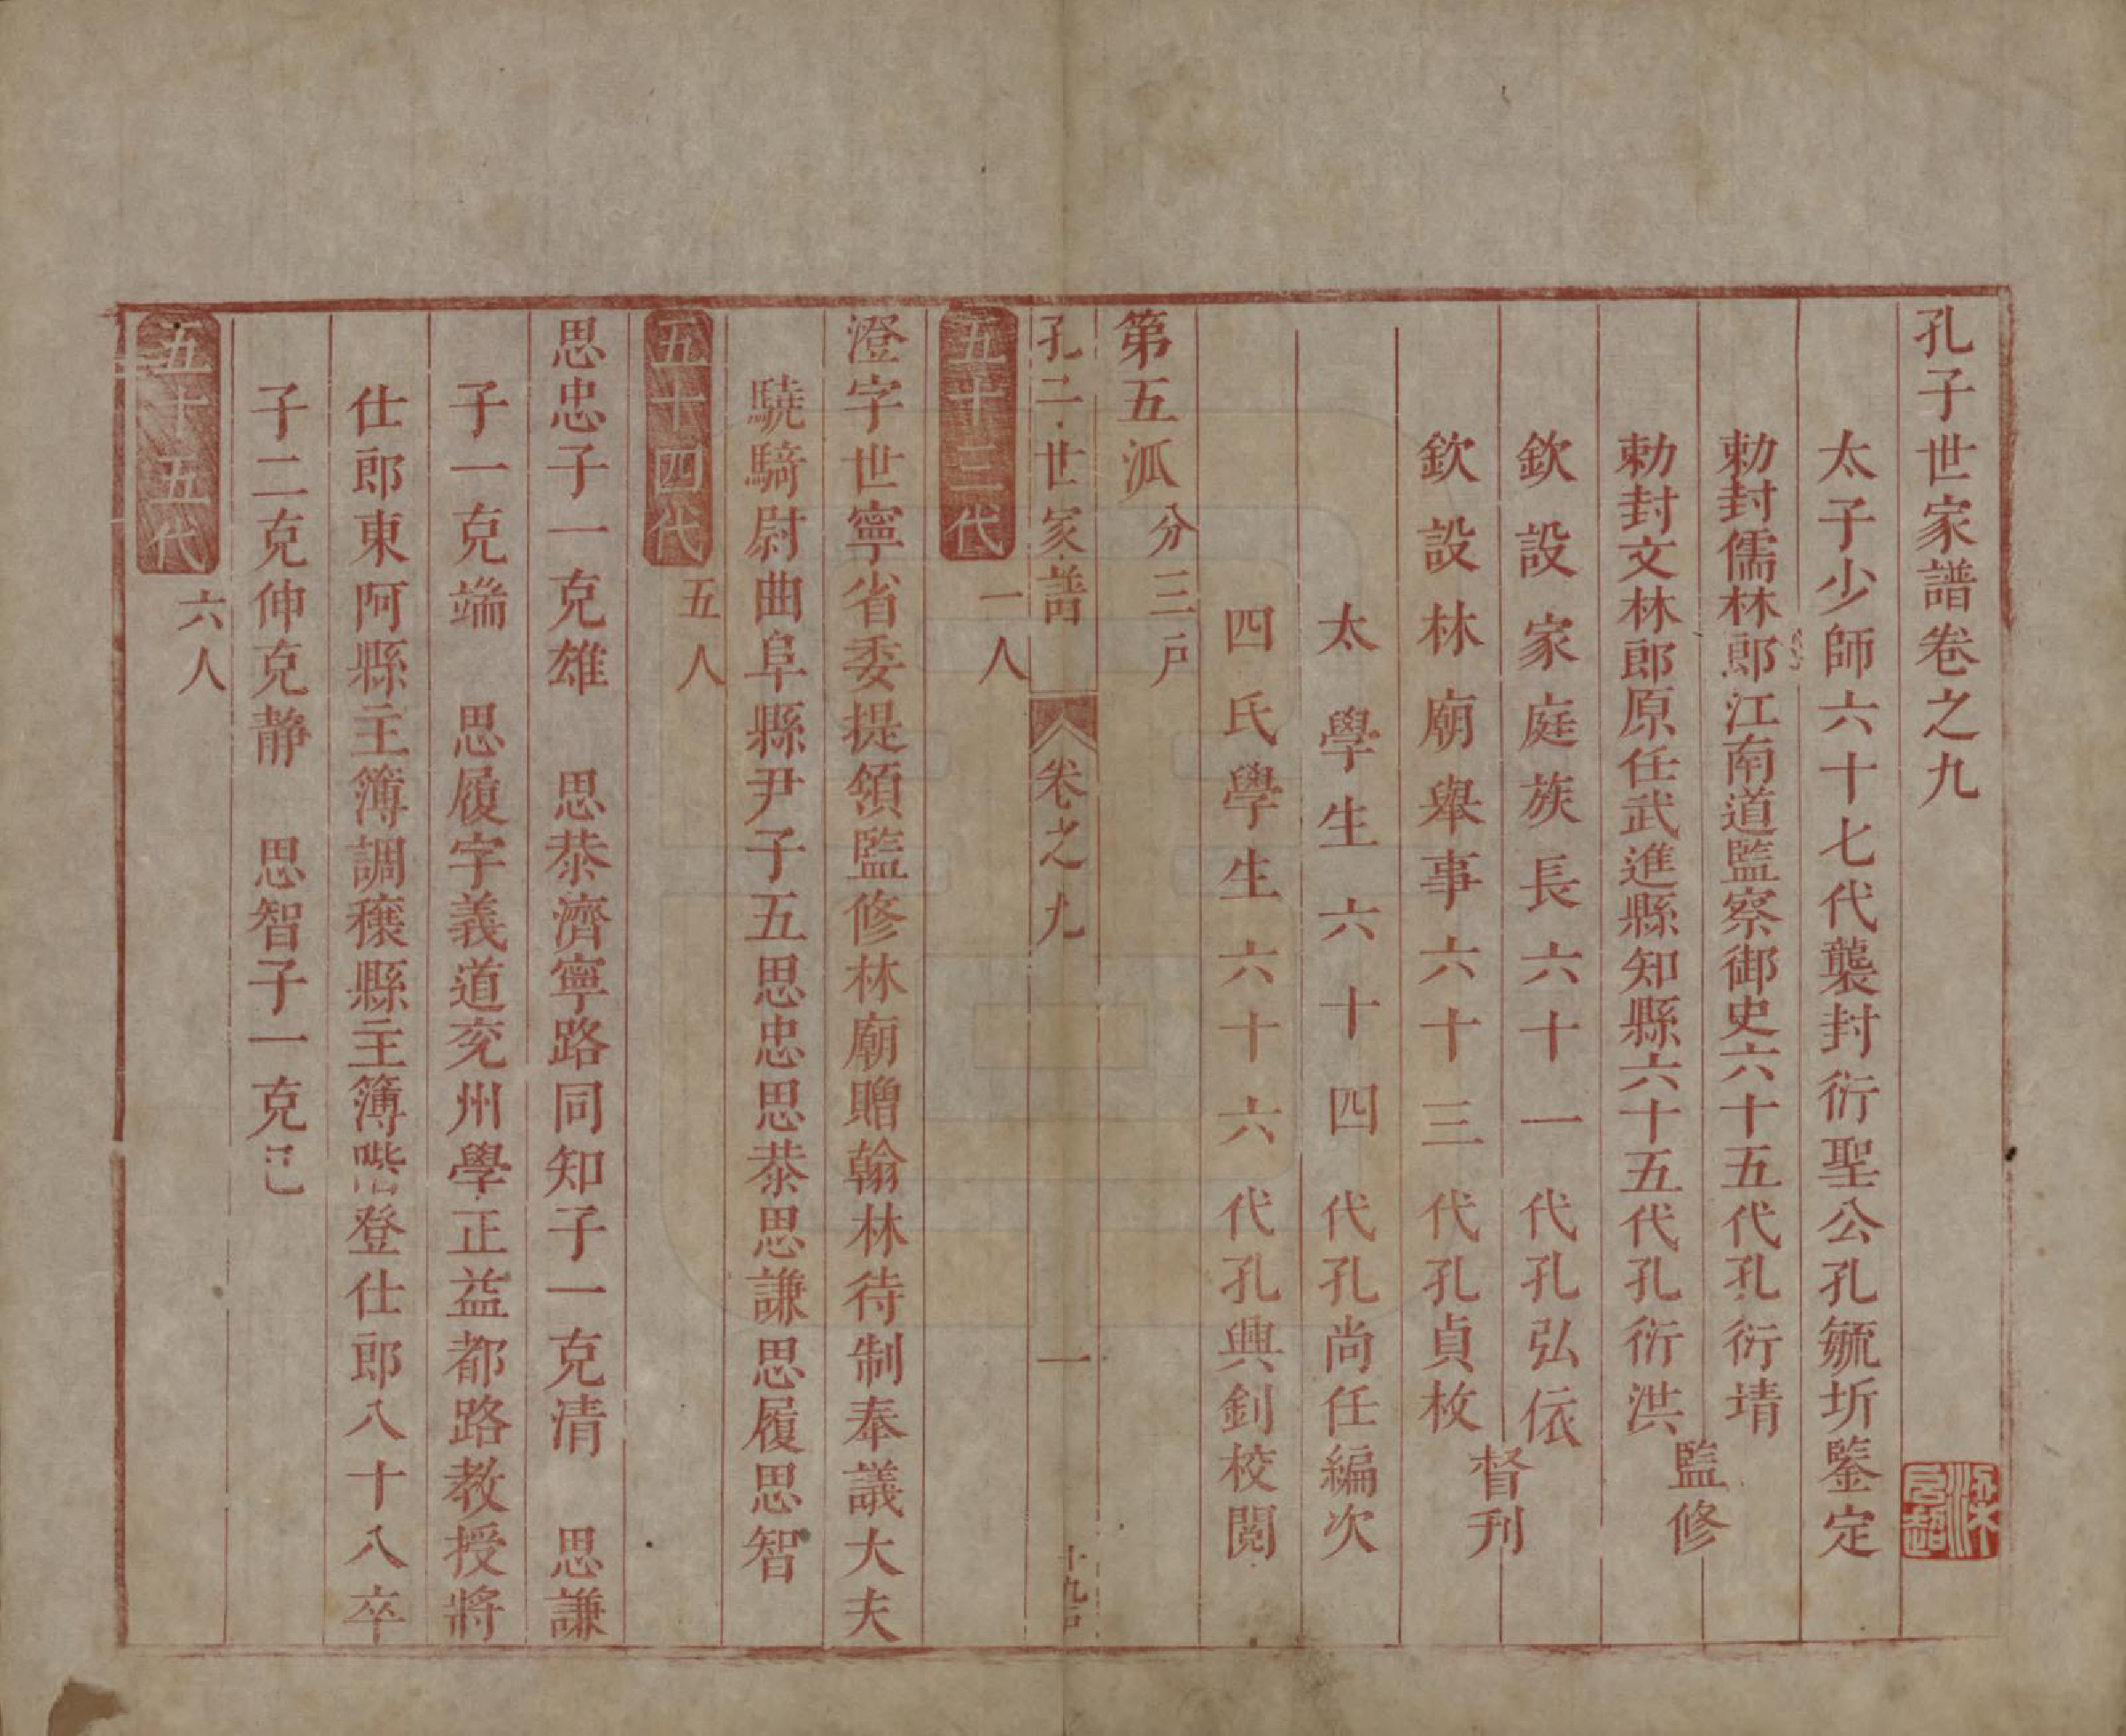 孔子世家譜卷之九
太子少師六十七代襲封衍聖公孔毓圻鑒定
勅封儒林郎江南道監察御史六十五代孔衍靖
勅封文林郎原任武進縣知縣六十五代孔衍洪
監修
欽設家庭族長六十一代孔弘依
欽設林廟舉事六十三代孔貞枚
督刋
太學生六十四代孔尚任編次
四氏學生六十六代孔興釗校閱
第五派分三戸
孔子世家譜 卷之九 一 十九戸
五十三代 一人
澄字世寧省委提領監修林廟贈翰林待制奉議大夫
驍騎尉曲阜縣尹子五思忠思恭思謙思履思智
五十四代 五人
思忠子一克雄 思恭濟寧路同知子一克清 思謙
子一克端 思履字義道兖州學正益都路教授將
仕郎東阿縣主簿調穰縣主簿階登仕郎八十八卒
子二克伸克静 思智子一克己
五十五代 六人